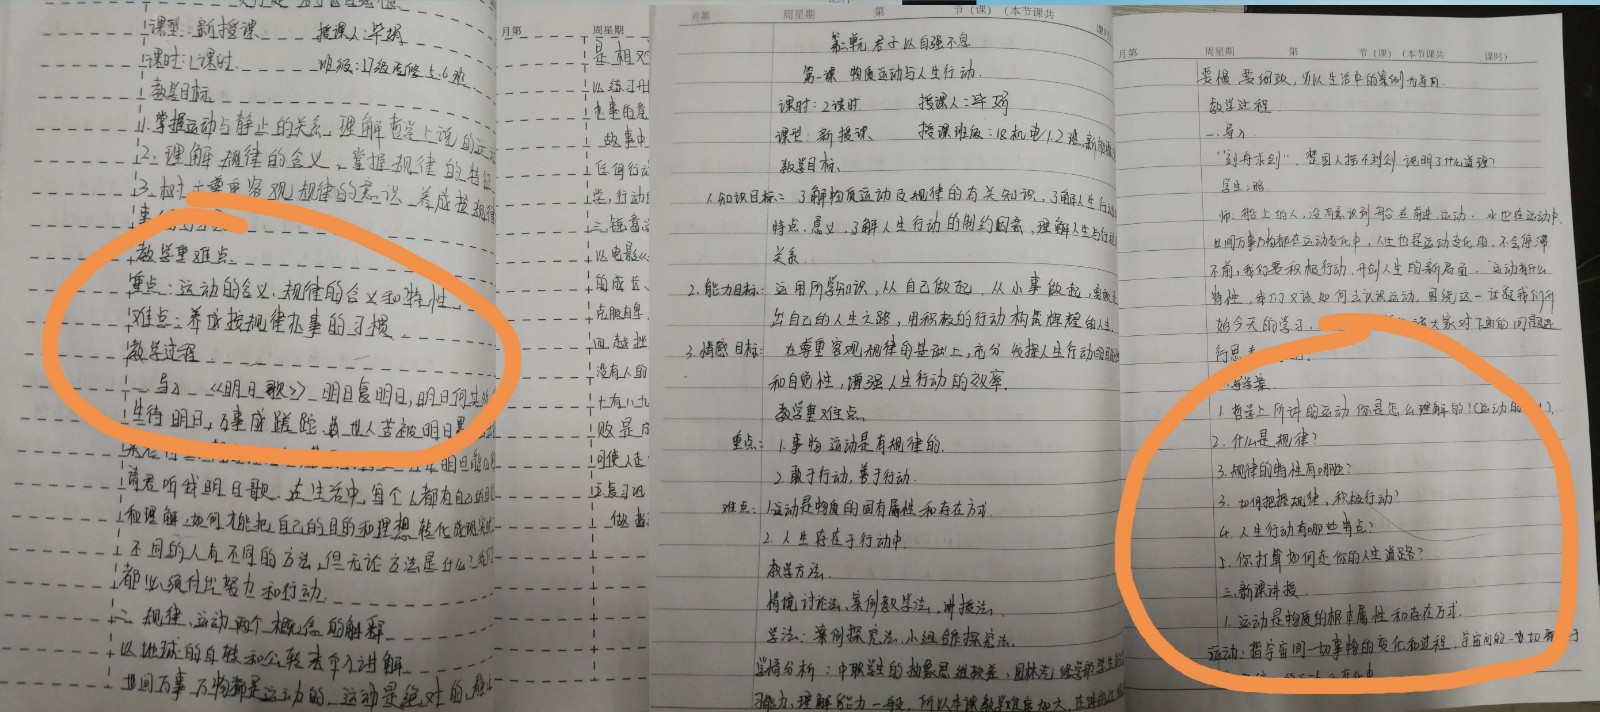 课型:新授课 授课人:毕娟
课时:1课时. 班级:17级
教学目标
1.掌握运动与静止的关系,理解哲学上说的运
2.理解规律的含义,掌握规律的特征
3.树立尊重客观规律的意识,养成按规律
事
教学重难点
重点:运动的含义.规律的含义和特性
难点:养成按规律办事的习惯
教学过程
一 导入 《明日歌》 明日复明日,明日何其
生待明日,万事成蹉跎.世人苦被明日累
请君听我明日歌.在生活中,每个人都有自己的目
和理解,如何才能把自己的目的和理想转化成现实
不同的人有不同的方法,但无论方法是什么?
都必须付出努力和行动.
二 规律、运动两个概念的解释
以地球的自转和公转去引入讲解
世间万事万物都是运动的.运动是绝对的,静
月第 周星期
是相对
以练习册
办事的意
故事中
任何行动
学,行动的
以电影《
的成长
克服自卑
没有人的
十有八九
败是成
可使人走
月第 周星期 第 节(课)(本节课共 课时)
第二单元 君子以自强不息
第一课 物质运动与人生行动.
课时:2课时 授课人:毕娟
课型:新授课. 授课班级:18机电1.2班.新能源
教学目标.
1.知识目标:了解物质运动及规律的有关知识,了解人生行动
特点、意义.了解人生行动的制约因素,理解人生与行动
关系.
2.能力目标:运用所学知识,从自己做起,从小事做起,
出自己的人生之路,用积极的行动构筑辉煌的人生.
3.情感目标:在尊重客观规律的基础上,充分发挥人生行动的目的性
和自觉性,增强人生行动的效率.
教学重难点.
重点:1.事物运动是有规律的.
2.敢于行动,善于行动.
难点:1.运动是物质的固有属性和存在方式.
2.人生存在于行动中.
教学方法.
情境讨论法、案例教学法、讲授法.
学法:案例探究法,小组合作探究法.
学情分析:中职学生的抽象思维较差,
习能力、理解能力一般,所以本课教学难度加大,
月第 周星期 第 节(课)(本节课共 课时)
要慢,要细致,多以生活中的案例为导向.
教学过程
一.导入
“刻舟求剑”,楚国人捞不到剑 说明了什么道理?
学生:略
师:船上的人,没有意识到船在前进、运动.水也在运动中.
世间万事万物都在运动变化中,人生也是运动变化的.不会停滞
不前,我们要积极行动,开创人生的新局面.运动有什么
特性,我们又该如何去认识运动.围绕这一话题我们开
始今天的学习. 请大家对下面的问题进
行思考
二、导学案
1.哲学上所讲的运动你是怎么理解的?(运动的
2.什么是规律?
3.规律的特性有哪些?
3.如何把握规律,积极行动?
4.人生行动有哪些特点?
5.你打算如何走你的人生道路?
三.新课讲授.
1.运动是物质的根本属性和存在方式.
运动:指宇宙间一切事物的变化和过程,宇宙间的一切